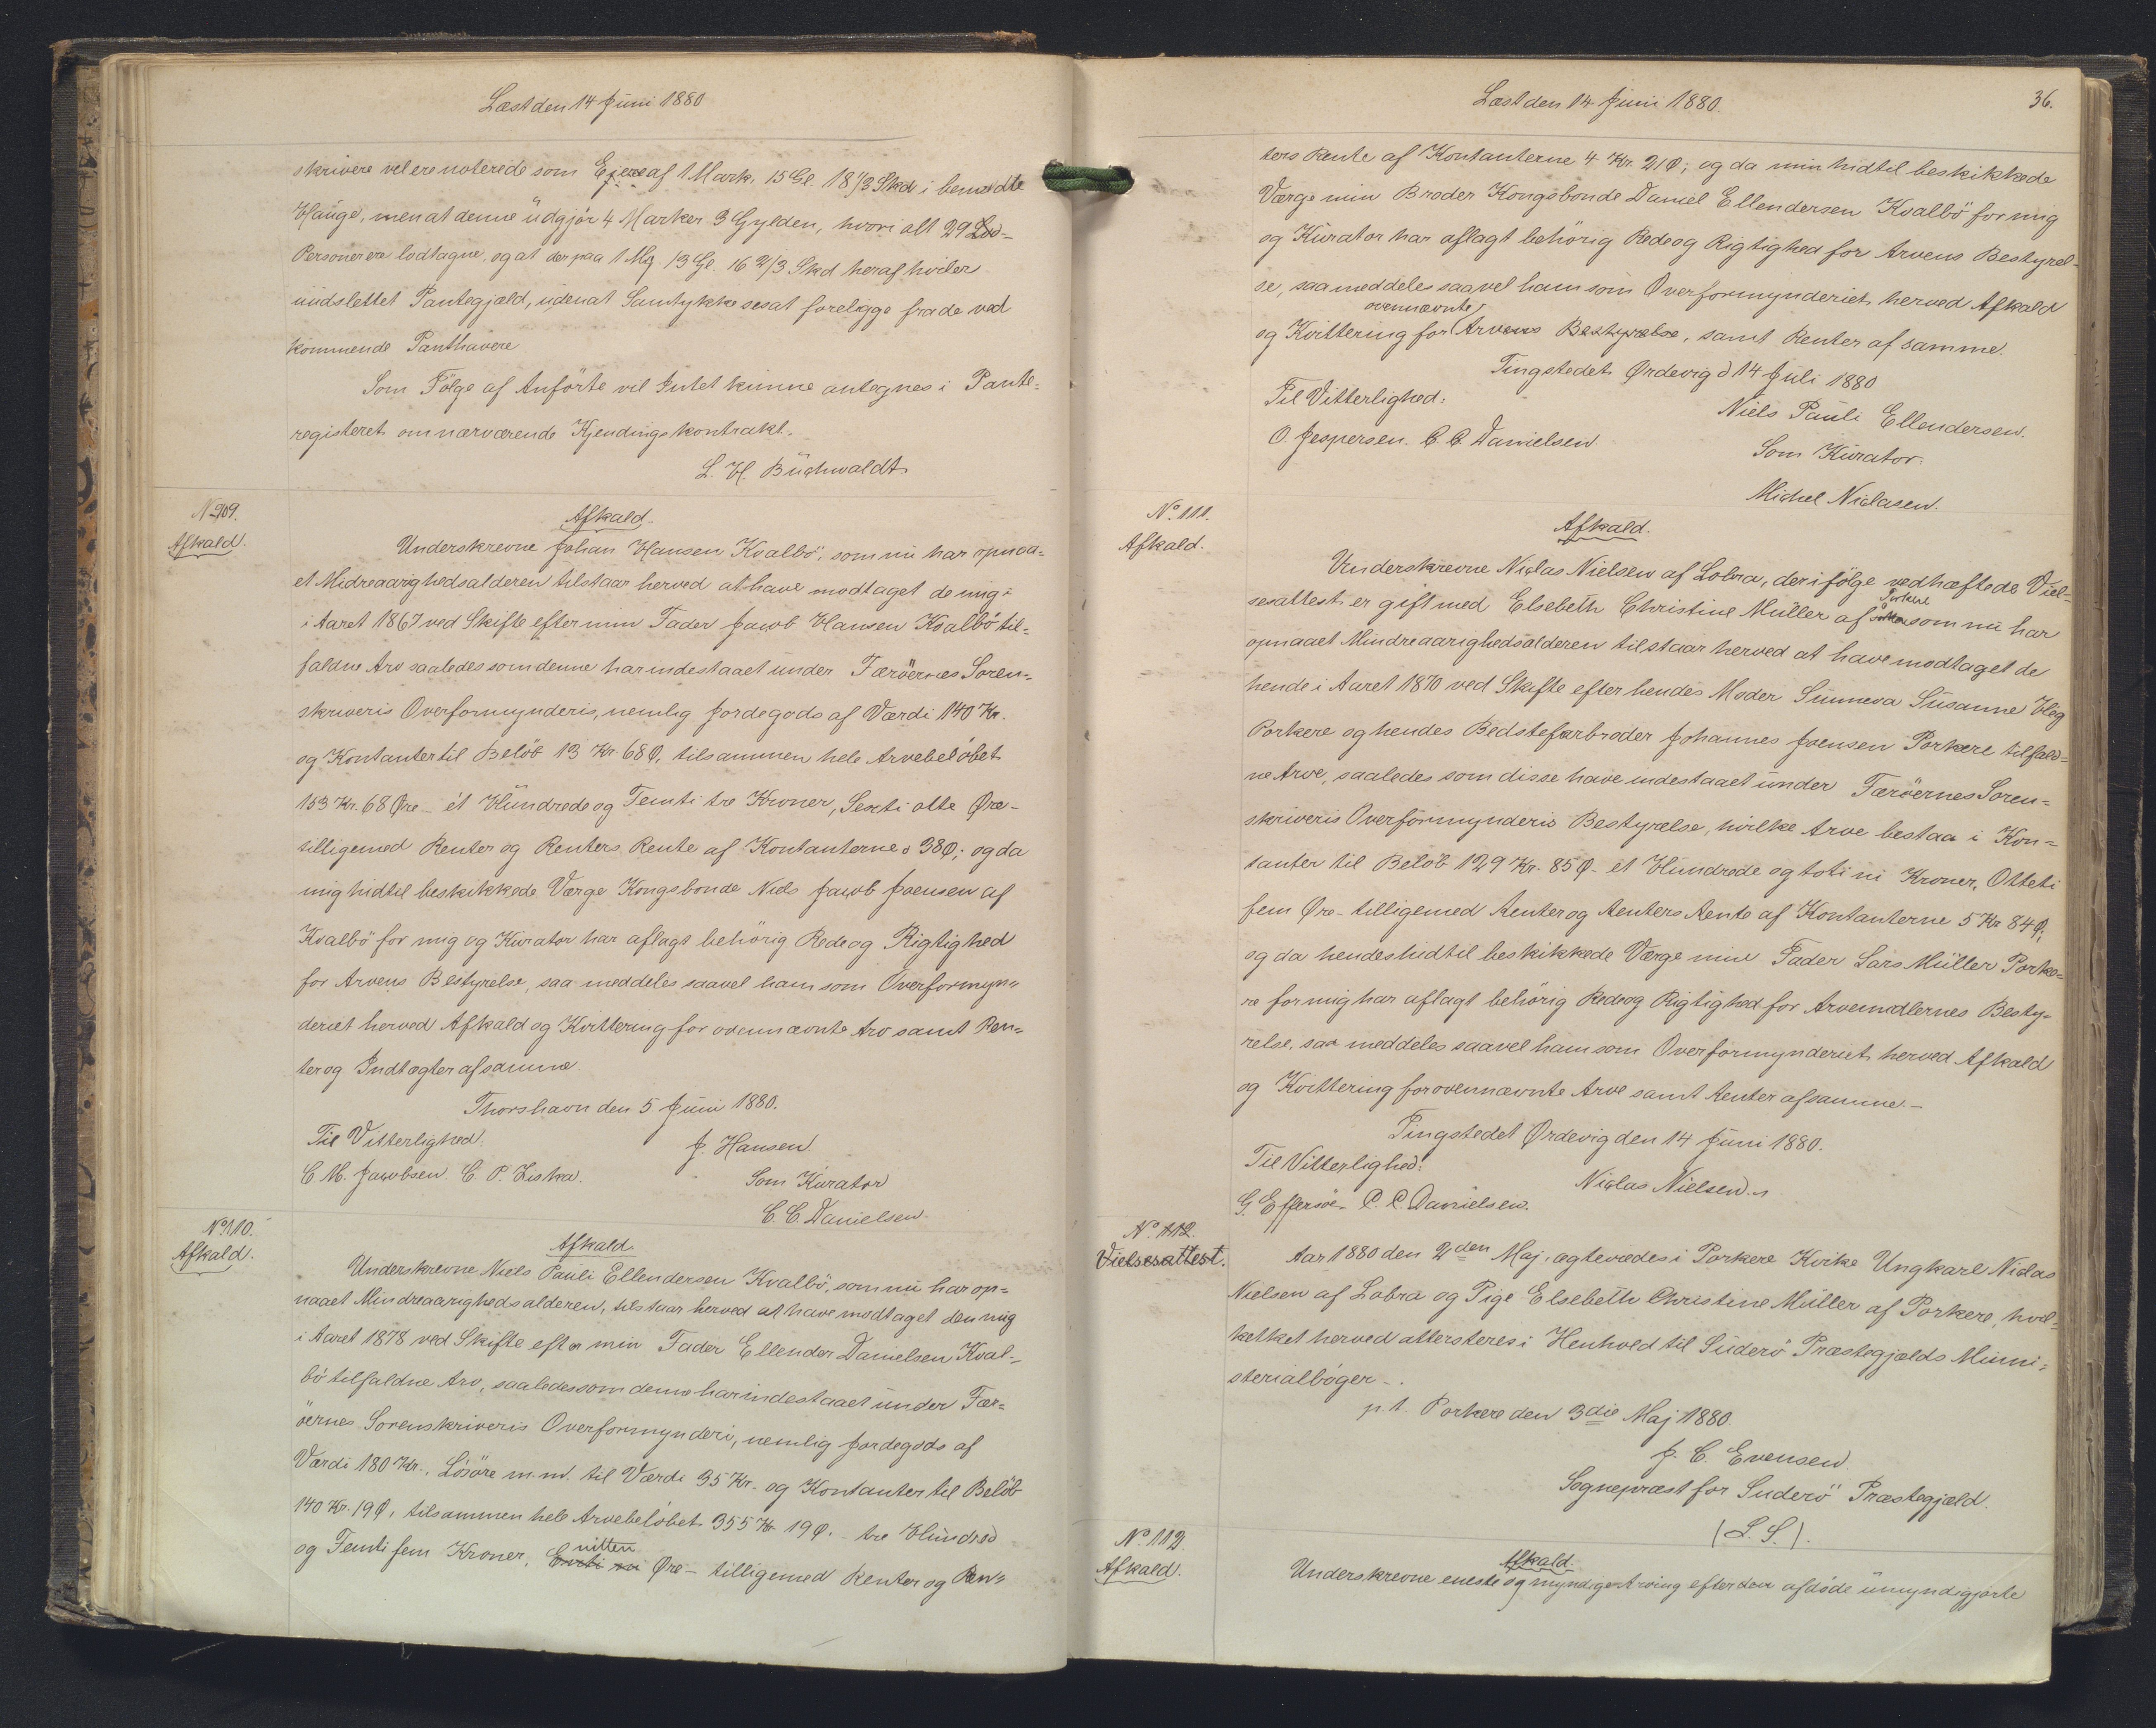 Læst den 14 Juni 1880
skrivere vel ere noterede som Ejere af 1 Mark. 15 Gl. 18 1/3 Skd i bemeldte
Hauge, men at denne udgjör 4 Marker 3 Gylden, hvori alt 29 Lod-
Personer ere lodtagne, og at der paa 1 Mg 13 Gl. 16 2/3 Skd heraf hviler
uudslettet Pantegjæld, uden at Samtykke sesat foreligge fra de ved
kommende Panthavere
Som Fölge af Anförte vil Intet kunne antegnes i Pante=
registeret om nærværende Kjendingskontrakt.
L. H. Buchwaldt
N 109.
Afkald.
Afkald.
Underskrevne Johan Hansen Kvalbö, som nu har opnaa=
et Midreaarighedsalderen tilstaar herved at have modtaget de mig i
i Aaret 1867 ved Skifte efter min Fader Jacob Hansen Kvalbö til=
faldne Arv saaledes som denne har indestaaet under Færöernes Soren=
skriveris Overformynderis, nemlig Jordegods af Værdi 140 Kr.
og Kontanter til Belöb 13 Kr. 68 Ø, tilsammen hele Arvebelöbet
153 Kr. 68 Øre - ét Hundrede og Femti tre Kroner, Sexti otte Øre -
tilligemed Renter og Renters Rente af Kontanterne 38 Ø; og da
mig hidtil beskikkede Værge Kongsbonde Niels Jacob Joensen af
Kvalbö for mig og Kurator har aflagt behörig Rede og Rigtighed
for Arvens Bestyrelse, saa meddeles saavel ham som Overformyn=
deriet herved Afkald og Kvittering for ovennævnte Arv samt Ren=
ter og Indtægter af samme.
Thorshavn den 5 Juni 1880.
Til Vitterlighed: J. Hansen.
C. M. Jacobsen. C. P. Ziska. Som Kurator
C. C. Danielsen.
No 110.
Afkald.
Afkald.
Underskrevne Niels Pauli Ellendersen Kvalbö, som nu har op=
naaet Mindreaarighedsalderen, tilstaar herved at have modtaget den mig
i Aaret 1878 ved Skifte efter min Fader Ellender Danielsen Kval=
bö tilfaldne Arv, saaledes som denne har indestaaet under Fær=
öernes Sorenskriveris Overformynderi, nemlig Jordegods af
Værdi 180 Kr., Lösöre m. m. til Værdi 35 Kr. og Kontanter til Belöb
140 Kr. 19 Ø, tilsammen hele Arvebelöbet 355 Kr 19 Ø. - tre Hundred
og Femti fem Kroner, nitten Øre - tilligemed Renter og Ren=
Læst den 14 Juni 1880.
36.
ters Rente af Kontanterne 4 Kr. 21 Ø; og da min hidtil beskikkede
Værge min Broder Kongsbonde Daniel Ellendersen Kvalbö for mig
og Kurator har aflagt behörig Rede og Rigtighed for Arvens Bestyrel-
se, saa meddeles saavel ham som Overformynderiet herved Afkald
og Kvittering for ovennævnte Arvens Bestyrelse, samt Renter af samme.
Tingstedet Ørdevig d 14 Juli 1880
Til Vitterlighed: Niels Pauli Ellendersen.
O. Jespersen. C. C. Danielsen Som Kurator:
Michel Niclasen.
No. 111.
Afkald.
Afkald.
Underskrevne Niclas Nielsen af Lobra, der ifölge vedhæftede Viel-
sesattest er gift med Elsebeth Christine Müller af Porkere som nu har
opnaaet Mindreaarighedsalderen tilstaar herved at have modtaget de
hende i Aaret 1870 ved Skifte efter hendes Moder Sunneva Susanne Høg
Porkere og hendes Bedstefarbroder Johannes Joensen Porkere tilfald=
ne Arve, saaledes som disse have indestaaet under Færöernes Soren=
skriveris Overformynderis Bestyrelse, hvilke Arve bestaa i Kon=
tanter til Belöb 129 Kr. 85 Ø - et Hundrede og toti ni Kroner, Otteti
fem Øre - tilligemed Renter og Renters Rente af Kontanterne 5 Kr 84 Ø;
og da hendes hidtil beskikkede Værge min Fader Lars Müller Porke=
re for mig har aflagt behörig Rede og Rigtighed for Arvemidlernes Besty=
relse, saa meddeles saavel ham som Overformynderiet herved Afkald
og Kvittering for ovennævnte Arve samt Renter af samme. -
Tingstedet Ørdevig den 14 Juni 1880.
Til Vitterlighed: Niclas Nielsen.
G. Effersöe. C. C. Danielsen.
No. 112.
Vielsesattest.
Aar 1880 den 2den Maj, ægteviedes i Porkere Kirke Ungkarl Niclas
Nielsen af Lobra og Pige Elsebeth Christine Müller af Porkere, hvil=
ketket herved attersteres i Henhold til Suderö Præstegjælds Minni=
sterialböger -.
p. t. Porkere den 3die Maj 1880.
J. C. Evensen.
Sognepræst for Suderö Præstegjæld.
(L. S.).
No. 112.
Afkald.
Afkald.
Underskrevne eneste og myndige Arving efter den afdöde umyndiggjorte